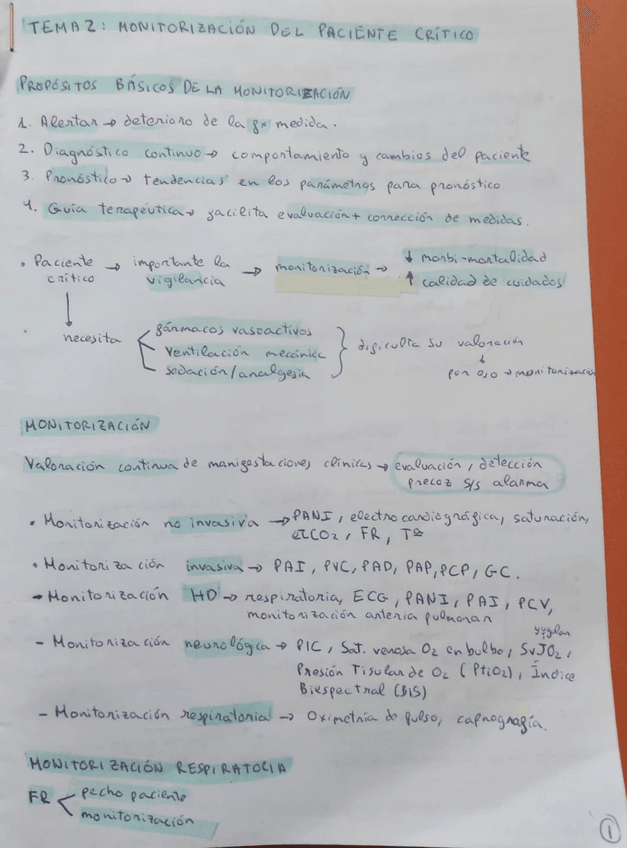 TEMA 2: MONITORIZACIÓN DEL PACIENTE CRÍTICO
PROPÓSITOS BÁSICOS DE LA MONITORIZACIÓN
1. Alertar → deterioro de la fx medida.
2. Diagnóstico continuo → comportamiento y cambios del paciente
3. Pronóstico → tendencias en los parámetros para pronóstico.
4. Guía terapéutica → facilita evaluación + corrección de medidas.
• Paciente crítico → importante la vigilancia → monitorización → ↓ morbi-mortalidad
↑ calidad de cuidados
↓
necesita < fármacos vasoactivos
ventilación mecánica
sedación/analgesia
} dificulta su valoración
↓
por eso → monitorización
MONITORIZACIÓN
Valoración continua de manifestaciones clínicas → evaluación, detección
precoz s/s alarma
• Monitorización no invasiva → PANI, electrocardiográfica, saturación,
etCO2, FR, Tª
• Monitorización invasiva → PAI, PVC, PAD, PAP, PCP, GC.
- Monitorización HD → respiratoria, ECG, PANI, PAI, PCV,
monitorización arteria pulmonar
- Monitorización neurológica → PIC, Sat. venosa O2 en bulbo, SvJO2,
yugular
Presión Tisular de O2 (PtiO2), Índice
Biespectral (BIS)
- Monitorización respiratoria → Oximetría de pulso, capnografía.
MONITORIZACIÓN RESPIRATORIA
FR < pecho paciente
monitorización
1